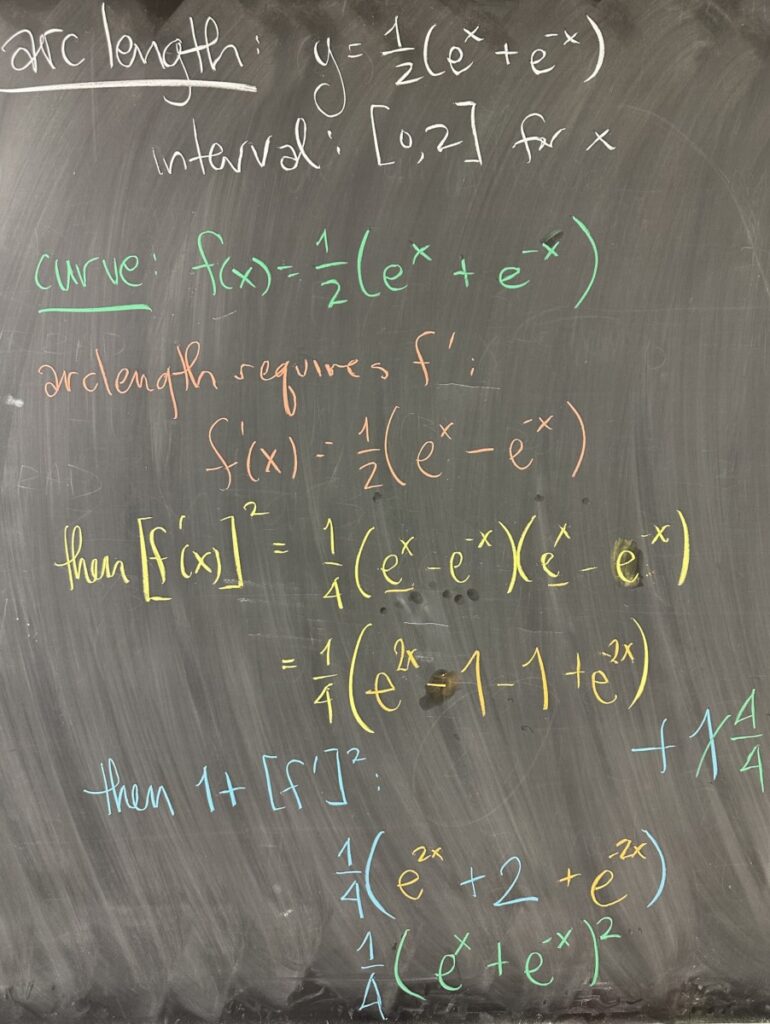 arc length: y = 1/2 (e^x + e^-x)
interval: [0,2] for x
curve: f(x) = 1/2 (e^x + e^-x)
arclength requires f':
f'(x) = 1/2 (e^x - e^-x)
then [f'(x)]^2 = 1/4 (e^x - e^-x)(e^x - e^-x)
= 1/4 (e^2x - 1 - 1 + e^-2x)
+ 1 4/4
then 1 + [f']^2:
1/4 (e^2x + 2 + e^-2x)
1/4 (e^x + e^-x)^2